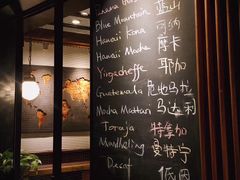 Blue Mountain 藍山
Hawaii Kona 可納
Hawaii Mocha 摩卡
Yirgacheffe 耶加
Guatemala 危地马拉
Mocha Mattari 马达利
Toraja 特集加
Mandheling 曼特宁
Decaf 低因